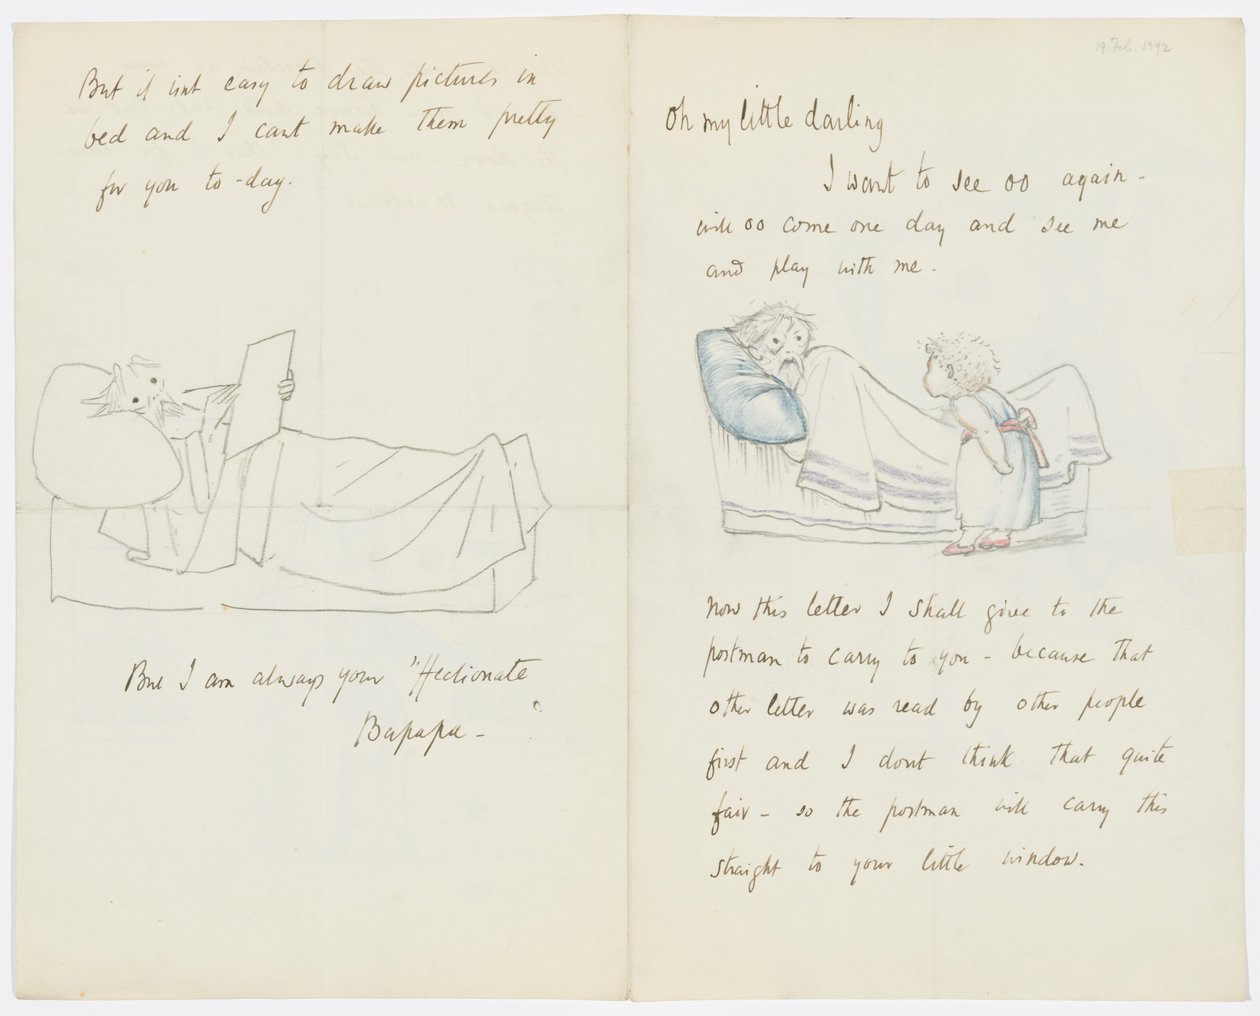 19 Feb. 1892
Oh my little darling
I want to see oo again -
will oo come one day and see me
and play with me -
Now this letter I shall give to the
postman to carry to you - because that
other letter was read by other people
first and I dont think that quite
fair - so the postman will carry this
straight to your little window.
But it isnt easy to draw pictures in
bed and I cant make them pretty
for you to-day.
But I am always your "ffectionate
Bapapa -